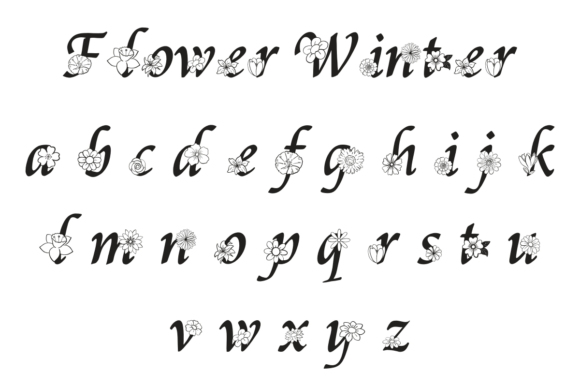 Flower Winter
a b c d e f g h i j k
l m n o p q r s t u
v w x y z